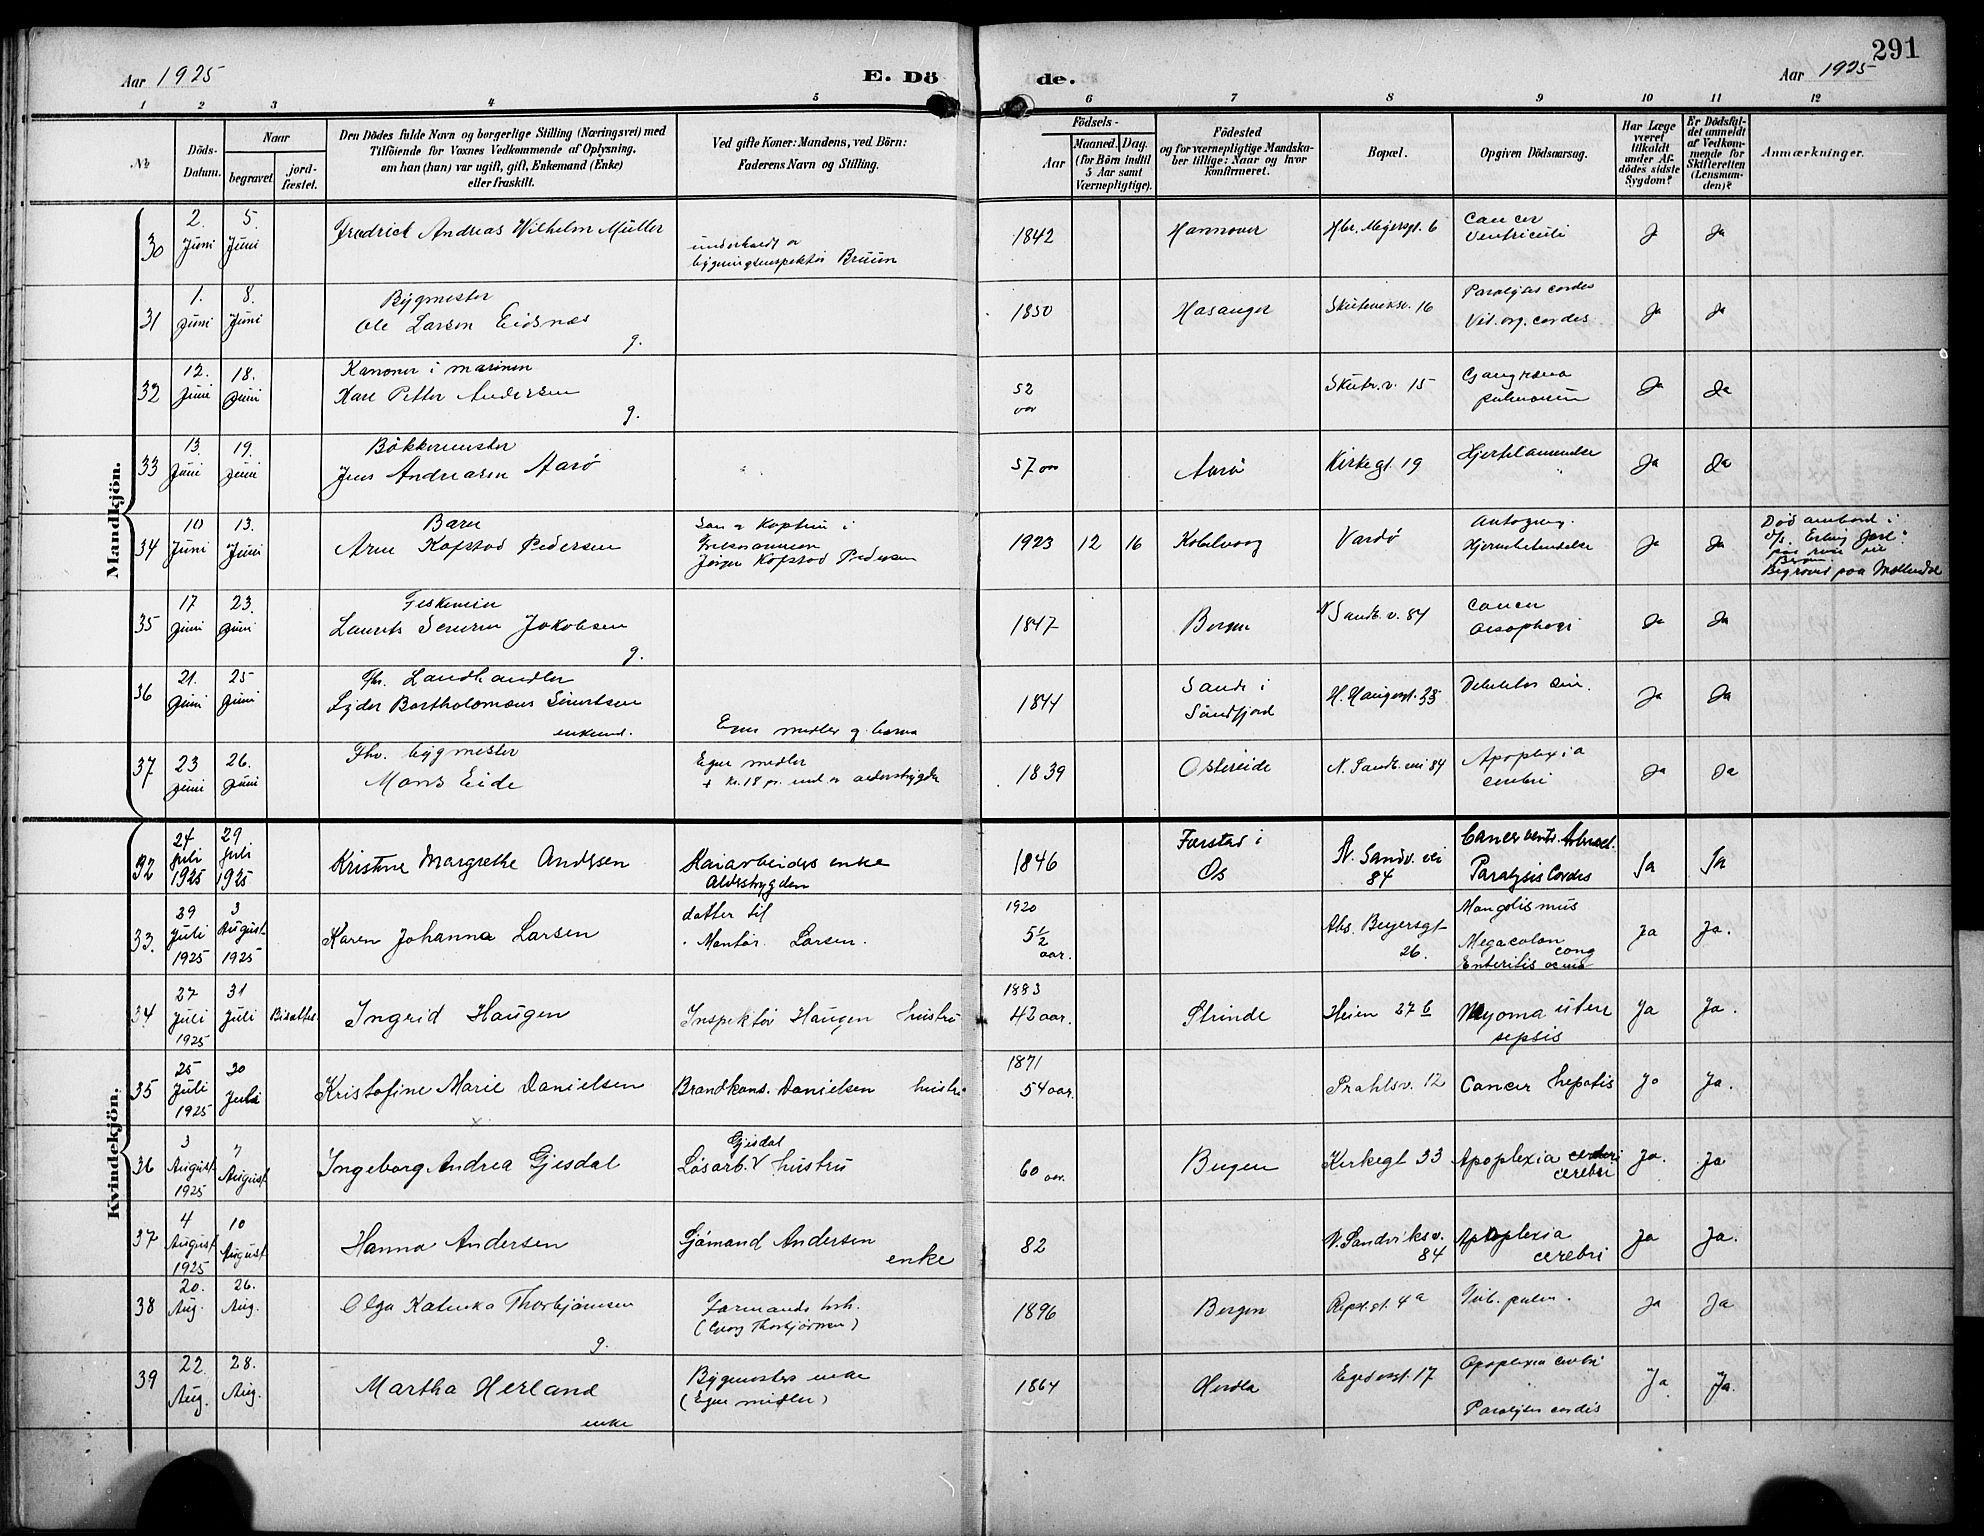 291
Aar 1925
E. Dö de.
Aar 1925
1 2 3 4 5 6 7 8 9 10 11 12
No
Döds-Datum.
Naar
begravet.
jord-fæstet.
Den Dödes fulde Navn og borgerlige Stilling (Næringsvei) med
Tilföiende for Voxnes Vedkommende af Oplysning,
om han (hun) var ugift, gift, Enkemand (Enke)
eller fraskilt.
Ved gifte Koner: Mandens, ved Börn:
Faderens Navn og Stilling.
Födsels-
Aar
Maaned. Dag.
(for Börn indtil
5 Aar samt
Værnepligtige).
Födested
og for værnepligtige Mandska-
ber tillige: Naar og hvor
konfirmeret.
Bopæl.
Opgiven Dödsaarsag.
Har Læge
været
tilkaldt
under Af-
dödes sidste
Sygdom?
Er Dödsfal-
det anmeldt
af Vedkom-
mende for
Skifteretten
(Lensman-
den)?
Anmærkninger.
Mandkjön.
30 2. Juni 5. Juni Fredrick Andreas Wilhelm Müller Bruun 1842 Hannover 6 Cancer Ventriculi Ja Ja
31 1. Juni 8. Juni Bygmester Ole Larsen Eidsnæs g. 1850 16 Paralysis cordis Vit. org. cordis. Ja Ja
32 12. Juni 18. Juni Kanoner i marinen Karl Petter Andersen g. 52 aar Skutv. v. 15 Gangræna pulmonum Ja Ja
33 13. Juni 19. Juni Bökkermester Jens Andreasen Aarö 57 aar Aarö Kirkegt. 19 Ja Ja
34 10 Juni 13. Juni Barn Arne Kofstad Pedersen Kofstad Pedersen 1923 12 16 Vardö Ja Ja Död ombord i d/s. Erling Jarl Begravet paa Møllendal
35 17 Juni 23. Juni Laurits Severin Jakobsen g. 1847 Bergen N Sandv. v. 84 Cancer Oesophagi Ja Ja
36 21. Juni 25 Juni Fhv. Landhandler Lyder Bartholomæus Sivertsen enkem. Egne midler og barna 1844 Sande i Söndfjord H. Haugesgt. 33 Ja Ja
37 23 Juni 26. Juni Fhv. bygmester Mons Eide Egne midler + kr. 18 pr. md. av alderstrygde 1839 Ostereide N. Sandv. vei 84 Apoplexia cerebri Ja Ja
Kvindekjön.
32 24 Juli 1925 29 Juli 1925 Kristine Margrethe Andersen Kaiarbeiders enke Alderstrygden 1846 i Os N. Sandv. vei 84 Cancer ventr. Paralysis Cordis Ja Ja
33. 29 Juli 1925 3 August 1925 Karen Johanna Larsen datter til Montør. Larsen. 1920 5½ aar. Abs. Beyersgt 26. Mongolismus Megacolon cong Enteritis acuta Ja Ja.
34 27 Juli 1925 31 Juli Bisattes. Ingrid Haugen Inspektör Haugen hustru 1883 42 aar. Strinde Heien 27 b Myoma uteri sepsis Ja Ja.
35 25 Juli 1925 30 Juli Kristofine Marie Danielsen Brandkons. Danielsen hustru 1871 54 aar. Prahlsv. 12 Cancer hepatis Ja Ja.
36 3 August 1925 7 August Ingeborg Andrea Gjesdal Løsarb. Gjesdal hustru 60 aar. Bergen Kirkegt 33 Apoplexia cerebri Ja. Ja
37 4 August 1925 10 August Hanna Andersen Sjömand Andersen enke 82 N. Sandviksv. 84 Apoplexia cerebri Ja Ja.
38 20. Aug. 26. Aug. Olga Katinka Thorbjörnsen g. Formands hstr. (Georg Thorbjörnsen) 1896 Bergen Repsl.gt. 4a Tub. pulm. Ja Ja
39 22. Aug. 28. Aug. Martha Herland enke Bygmesters enke (Egne midler) 1864 Herdla Egedesgt. 17 Apoplexia cerebri Paralysis cordis Ja Ja.